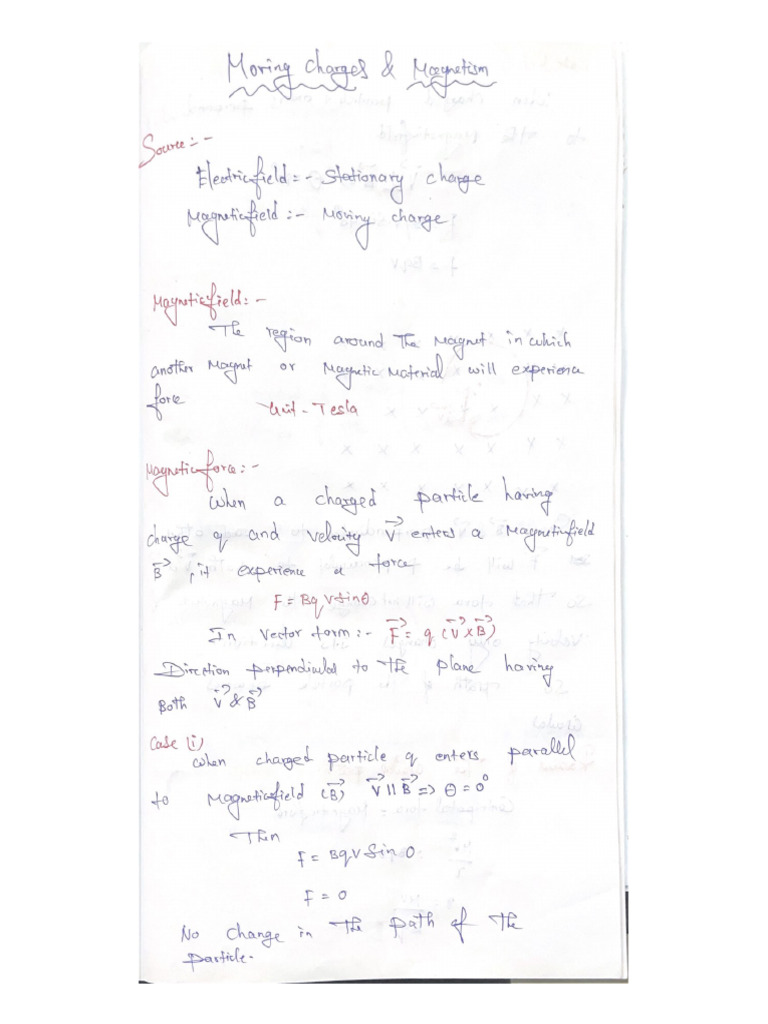 Moving Charges & Magnetism
Source:-
Electric field:- Stationary charge
Magnetic field:- Moving charge
Magnetic field:-
The region around The Magnet in which
another Magnet or Magnetic Material will experience
force Unit - Tesla
Magnetic force:-
When a charged particle having
charge q and velocity V⃗ enters a Magnetic field
B⃗ , it experience a force
F = BqVSinθ
In Vector form:- F⃗ = q (V⃗ × B⃗)
Direction perpendicular to the plane having
Both V⃗ & B⃗
Case (i)
When charged particle q enters parallel
to Magnetic field (B⃗) V⃗ || B⃗ => θ = 0°
Then
F = BqV Sin 0
F = 0
No change in The path of The
particle.